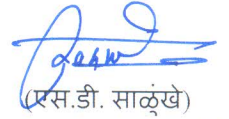 (एस.डी. साळुंखे)